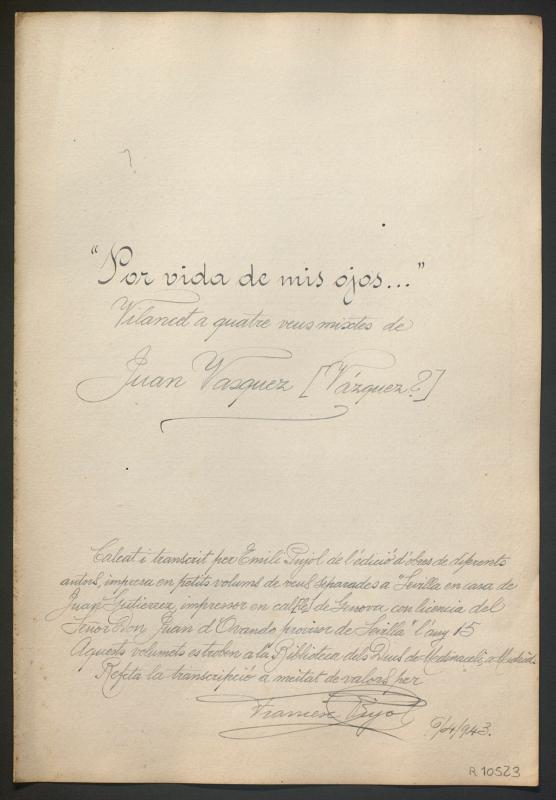 "Por vida de mis ojos..."
Vilancet a quatre veus mixtes de
Juan Vasquez [Vázquez?]
Calcat i transcrit per Emili Pujol de l'edició d'obres de diferents
autors, impresa en petits volums de veus separades a "Sevilla en casa de
Juan Gutierrez, impressor en cal de Genova con licencia del
Señor Don Juan d'Ovando provisor de Sevilla" l'any 15
Aquests volumets es troben a la Biblioteca dels Ducs de Medinaceli, a Madrid.
Refeta la transcripció a meitat de valors per
Francesc Pujol
6/4/943.
R. 10523